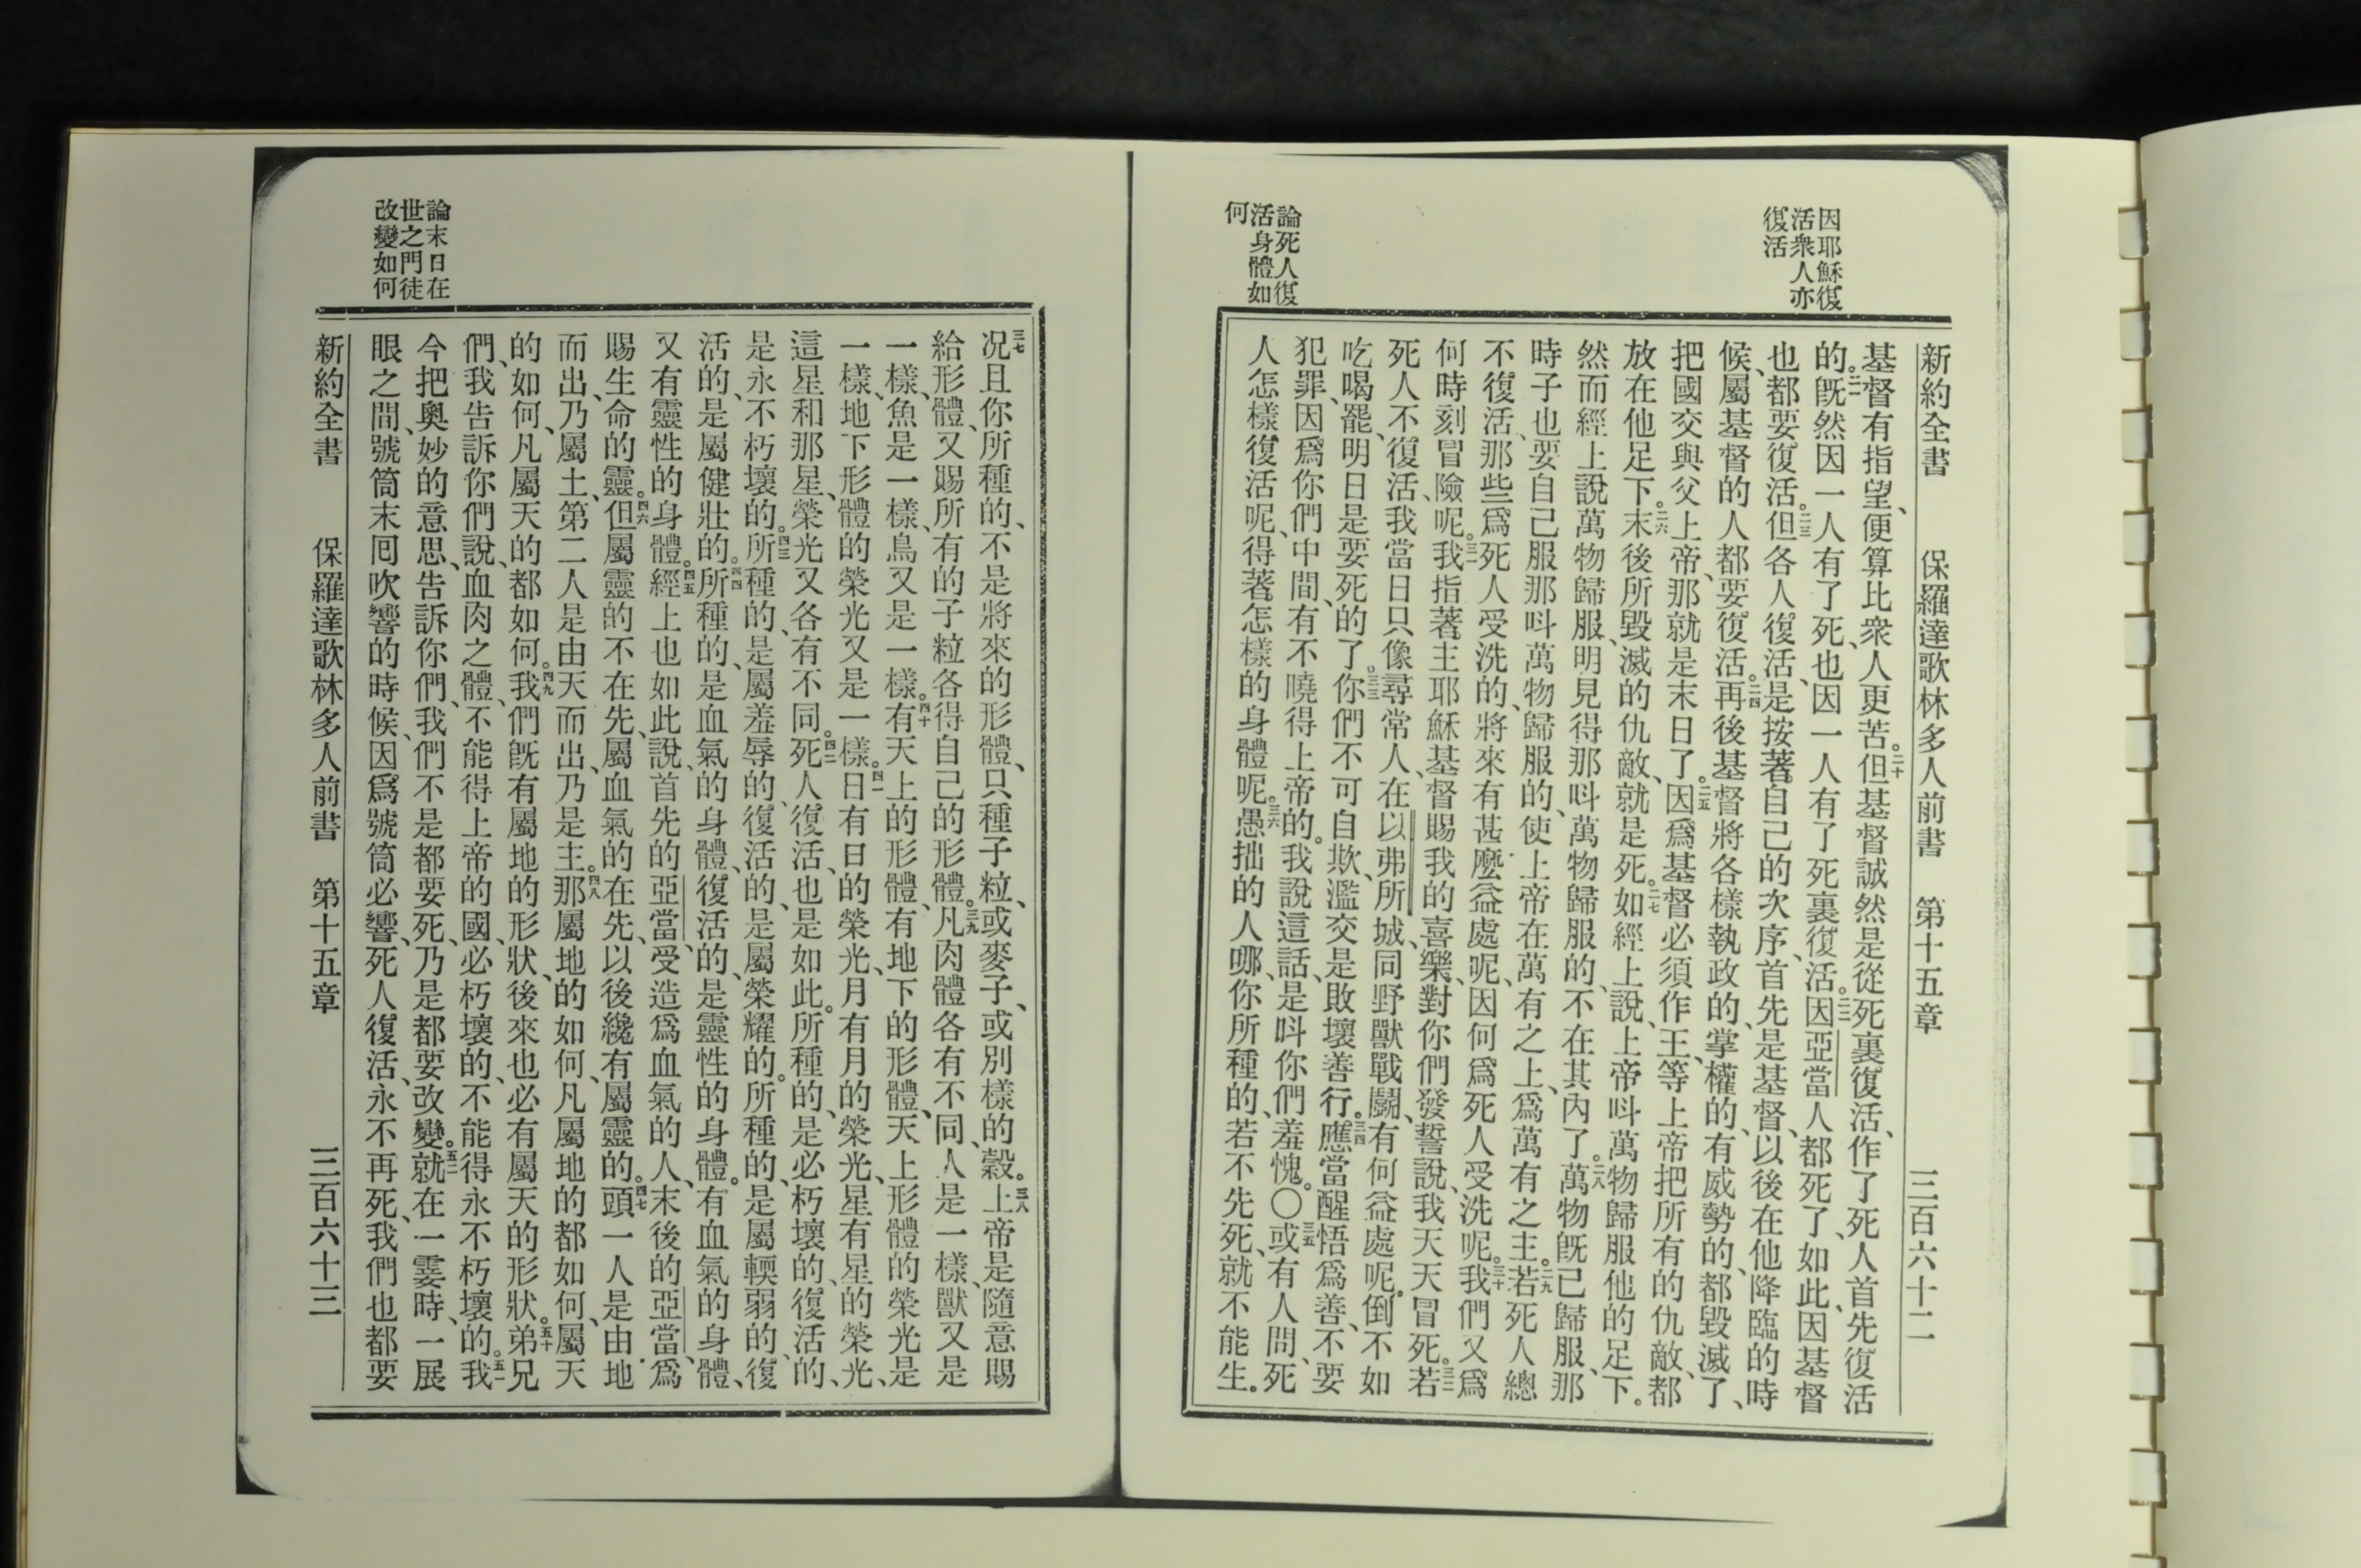 因耶穌復
活衆人亦
復活
論死人復
活身體如
何
新約全書 保羅達歌林多人前書 第十五章 三百六十二
基督有指望、便算比衆人更苦。二十但基督誠然是從死裏復活、作了死人首先復活
的。二一旣然因一人有了死、也因一人有了死裏復活。二二因亞當人都死了、如此、因基督
也都要復活。二三但各人復活、是按著自己的次序、首先是基督、以後在他降臨的時
候、屬基督的人都要復活。二四再後基督將各樣執政的、掌權的、有威勢的、都毀滅了、
把國交與父上帝、那就是末日了。二五因爲基督必須作王、等上帝把所有的仇敵、都
放在他足下。二六末後所毀滅的仇敵、就是死。二七如經上說、上帝呌萬物歸服他的足下。
然而經上說萬物歸服、明見得那呌萬物歸服的、不在其內了。二八萬物旣已歸服、那
時子也要自己服那呌萬物歸服的、使上帝在萬有之上、爲萬有之主。二九若死人總
不復活、那些爲死人受洗的、將來有甚麼益處呢、因何爲死人受洗呢。三十我們又爲
何時刻冒險呢。三一我指著主耶穌基督賜我的喜樂、對你們發誓說、我天天冒死。三二若
死人不復活、我當日只像尋常人、在以弗所城、同野獸戰鬭、有何益處呢。倒不如
吃喝罷、明日是要死的了。三三你們不可自欺、濫交是敗壞善行。三四應當醒悟爲善、不要
犯罪、因爲你們中間、有不曉得上帝的。我說這話、是呌你們羞愧。○三五或有人問、死
人怎樣復活呢、得著怎樣的身體呢。三六愚拙的人哪、你所種的、若不先死、就不能生。
論末日在
世之門徒
改變如何
三七况且你所種的、不是將來的形體、只種子粒、或麥子、或別樣的穀。三八上帝是隨意賜
給形體、又賜所有的子粒各得自己的形體。三九凡肉體各有不同、人是一樣、獸又是
一樣、魚是一樣、鳥又是一樣。四十有天上的形體、有地下的形體、天上形體的榮光是
一樣、地下形體的榮光又是一樣。四一日有日的榮光、月有月的榮光、星有星的榮光、
這星和那星、榮光又各有不同。四二死人復活、也是如此。所種的、是必朽壞的、復活的、
是永不朽壞的。四三所種的、是屬羞辱的、復活的、是屬榮耀的。所種的、是屬輭弱的、復
活的、是屬健壯的。四四所種的、是血氣的身體、復活的、是靈性的身體。有血氣的身體、
又有靈性的身體。四五經上也如此說、首先的亞當、受造爲血氣的人、末後的亞當、爲
賜生命的靈。四六但屬靈的不在先、屬血氣的在先、以後纔有屬靈的。四七頭一人是由地
而出、乃屬土、第二人是由天而出、乃是主。四八那屬地的如何、凡屬地的都如何、屬天
的如何、凡屬天的都如何。四九我們旣有屬地的形狀、後來也必有屬天的形狀。五十弟兄
們、我告訴你們說、血肉之體、不能得上帝的國、必朽壞的、不能得永不朽壞的。五一我
今把奧妙的意思、告訴你們、我們不是都要死、乃是都要改變。五二就在一霎時、一展
眼之間、號筒末囘吹響的時候、因爲號筒必響、死人復活、永不再死、我們也都要
新約全書 保羅達歌林多人前書 第十五章 三百六十三